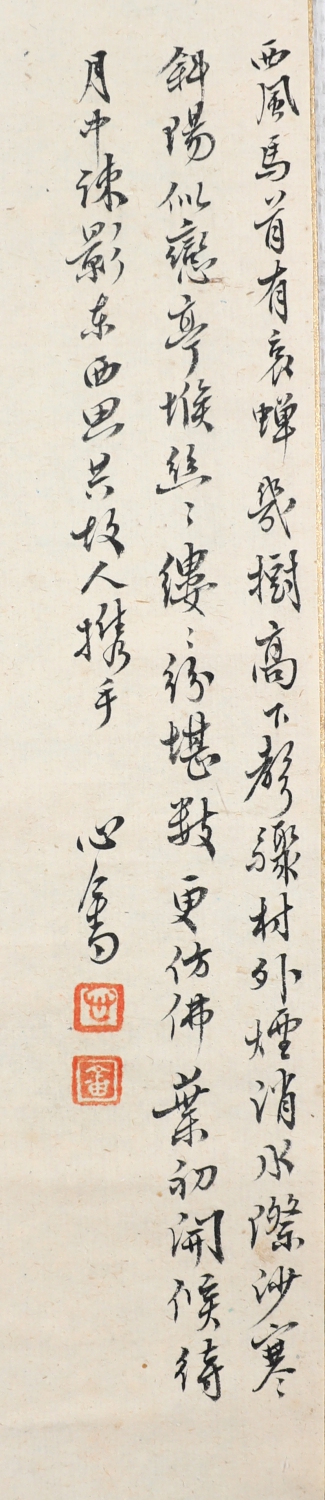 西風馬首有哀蟬幾樹高下聲驟村外煙消水際沙寒
斜陽似戀亭堠絲〻縷〻紛堪數更仿佛葉初開候待
月中疎影東西思共故人攜手
心畬